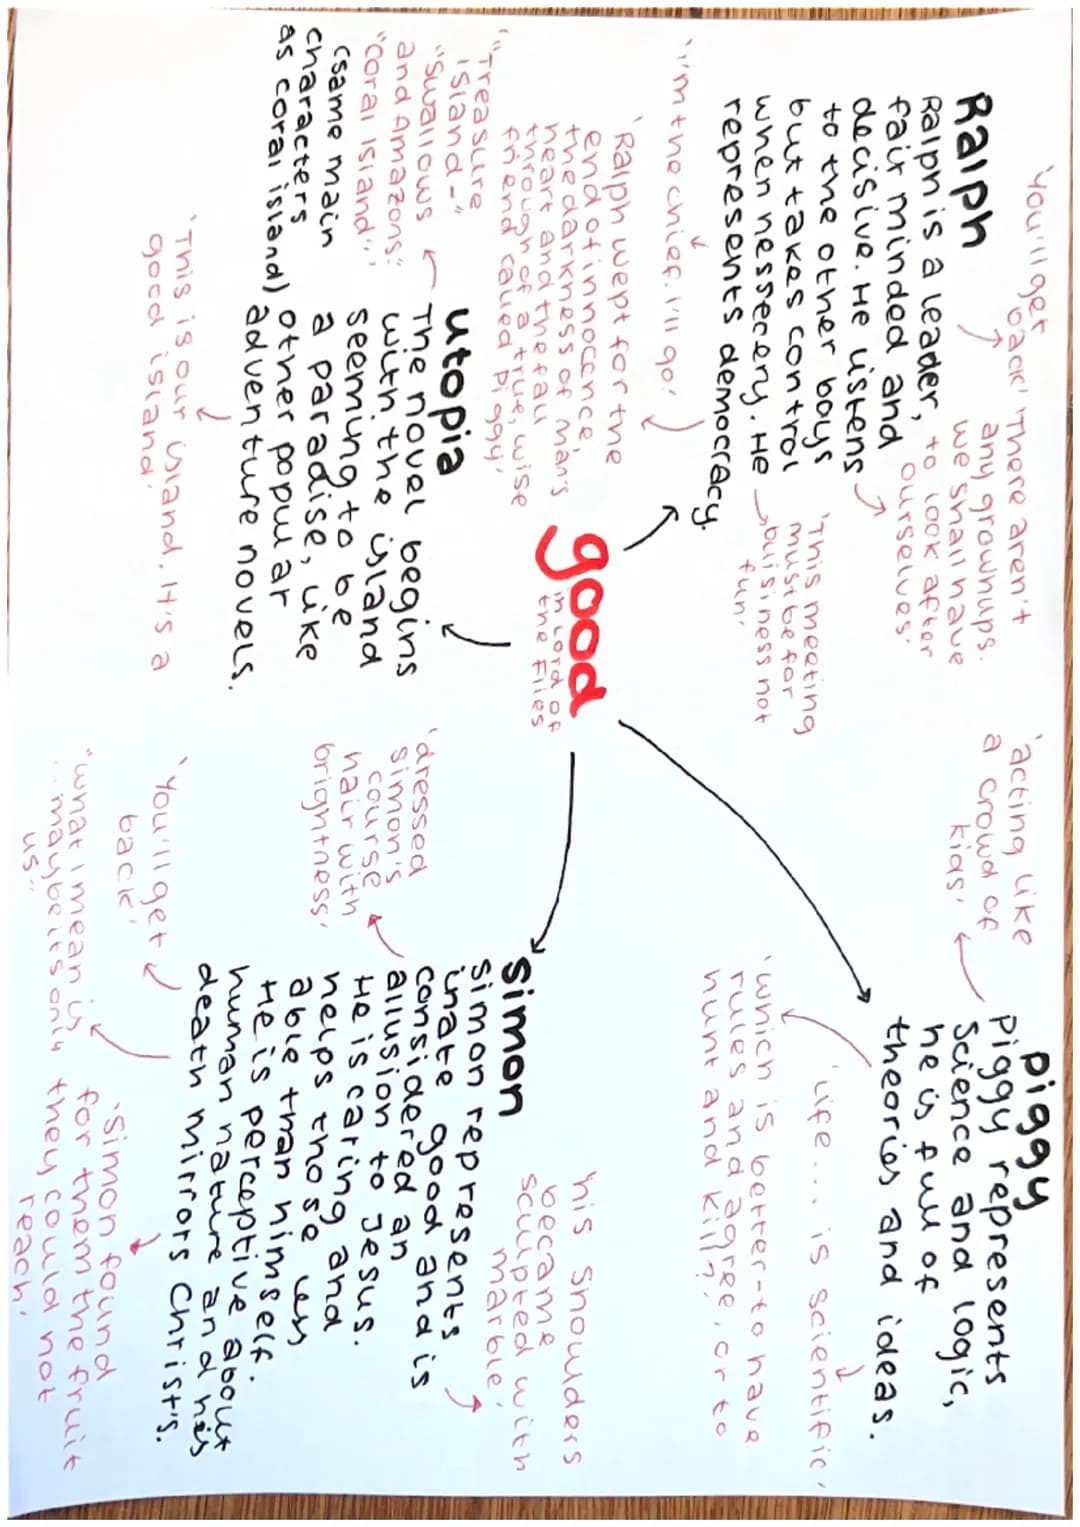 'You'll get
back'
Ralph
Ralph is a leader,
fair minded and
decisive. He listens
to the other boys
but takes control
when nessecery. He
represents democracy.
'There aren't
any grownups.
we shall have
to look after
ourselves'
'This meeting
must be for
buisiness not
fun'
'I'm the chief. I'll go.'
'Ralph wept for the
end of innocence,
the darkness of man's
heart and the fall
through of a true, wise
friend called piggy'
good
in Lord of
the Flies
utopia
The novel begins
with the island
seeming to be
a paradise, like
other popular
adventure novels.
'"Treasure
Island-"
"Swallows
and Amazons"
"Coral Island"'
(same main
characters
as coral island)
'This is our island. It's a
good island.'
'acting like
a crowd of
kids'
piggy
piggy represents
Science and logic,
he is full of
theories and ideas.
'Life... is scientific'
'which is better-to have
rules and agree, or to
hunt and kill?'
simon
simon represents
inate good and is
considered an
allusion to Jesus.
He is caring and
helps those less
able than himself.
He is perceptive about
human nature and his
death mirrors Christs.
'dressed
simon's
course
hair with
brightness'
'his shoulders
became
sculpted with
marble'
'You'll get
back'
"what I mean is
...maybe its only
us"
'Simon found
for them the fruit
they could not
reach'